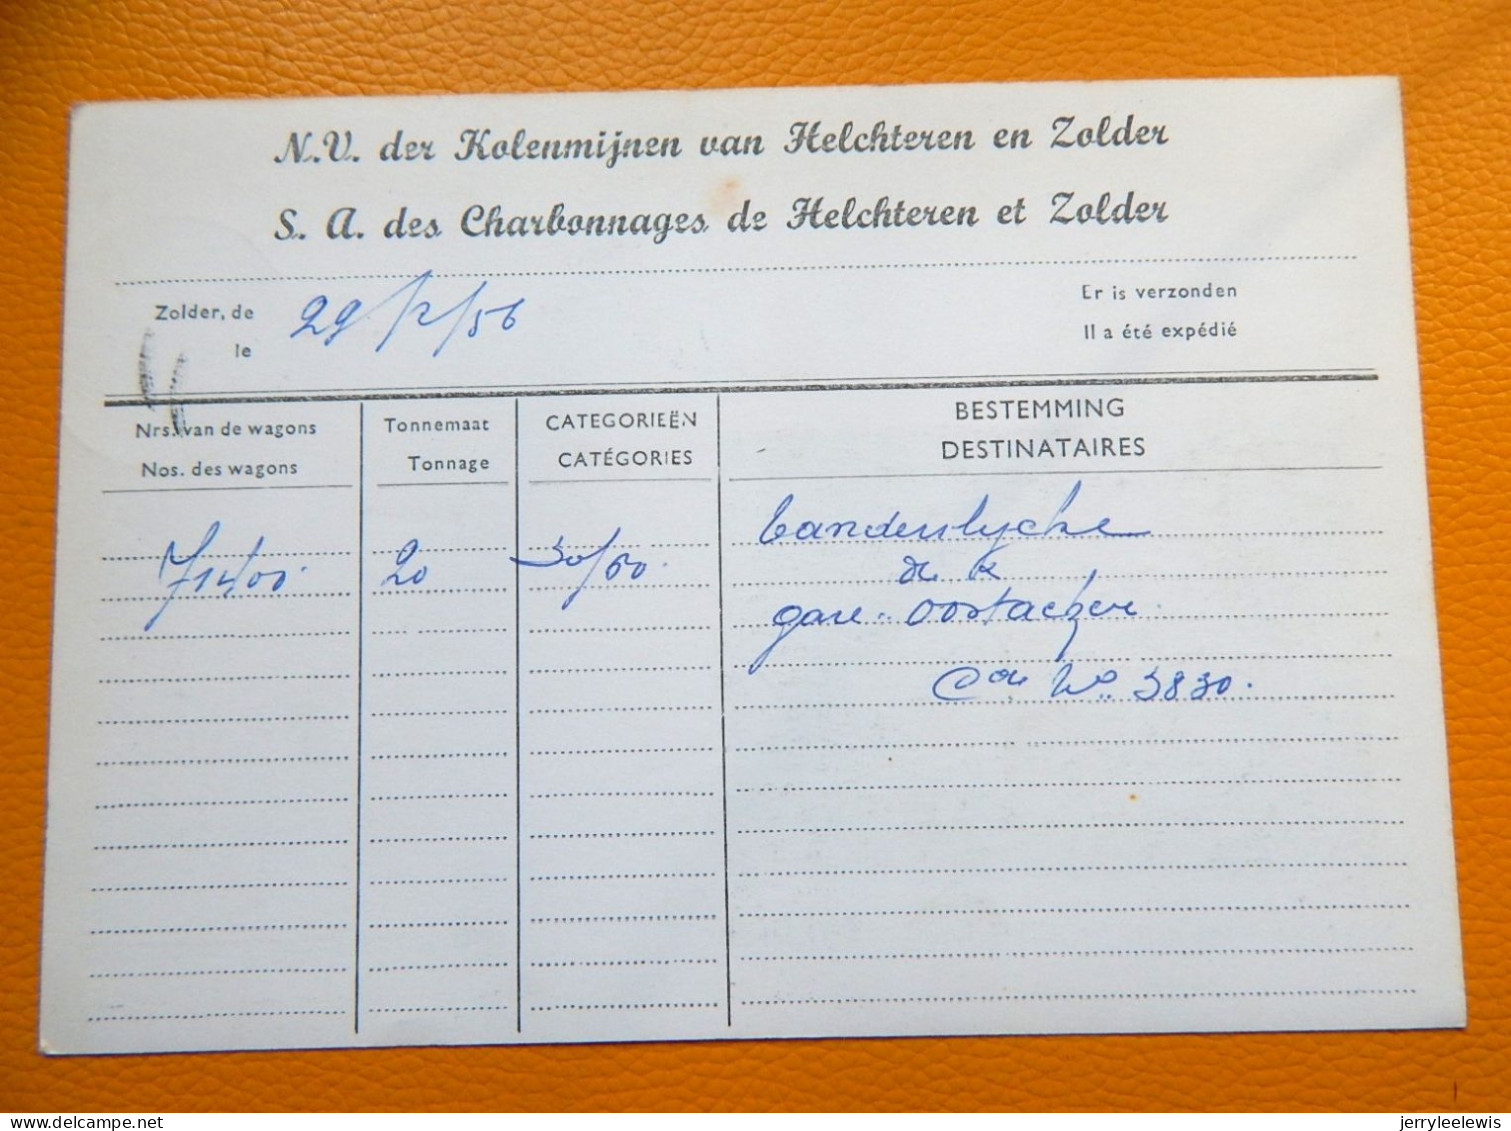 N.V. der Kolenmijnen van Helchteren en Zolder
S. A. des Charbonnages de Helchteren et Zolder
Zolder, de
le
29/2/56
Er is verzonden
Il a été expédié
Nrs. van de wagons
Nos. des wagons
Tonnemaat
Tonnage
CATEGORIEËN
CATÉGORIES
BESTEMMING
DESTINATAIRES
20
30/60.
gare Oostacker
Cde No 3830.
jerryleelewis